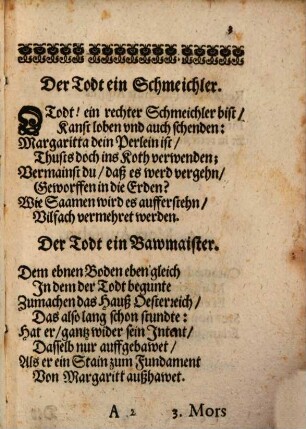 3
Der Todt ein Schmeichler.
O Todt! ein rechter Schmeichler bist/
Kanst loben vnd auch schenden:
Margaritta dein Perlein ist/
Thusts doch ins Koth verwenden;
Vermainst du/ daß es werd vergehn/
Geworffen in die Erden?
Wie Saamen wird es aufferstehn/
Vilfach vermehret werden.
Der Todt ein Bawmaister.
Dem ebnen Boden eben gleich
In dem der Todt begunte
Zumachen das Hauß Oesterreich/
Das also lang schon stundte:
Hat er/ gantz wider sein Intent/
Dasselb nur auffgebawet/
Als er ein Stain zum Fundament
Von Margaritt außhawet.
A 2 3. Mors